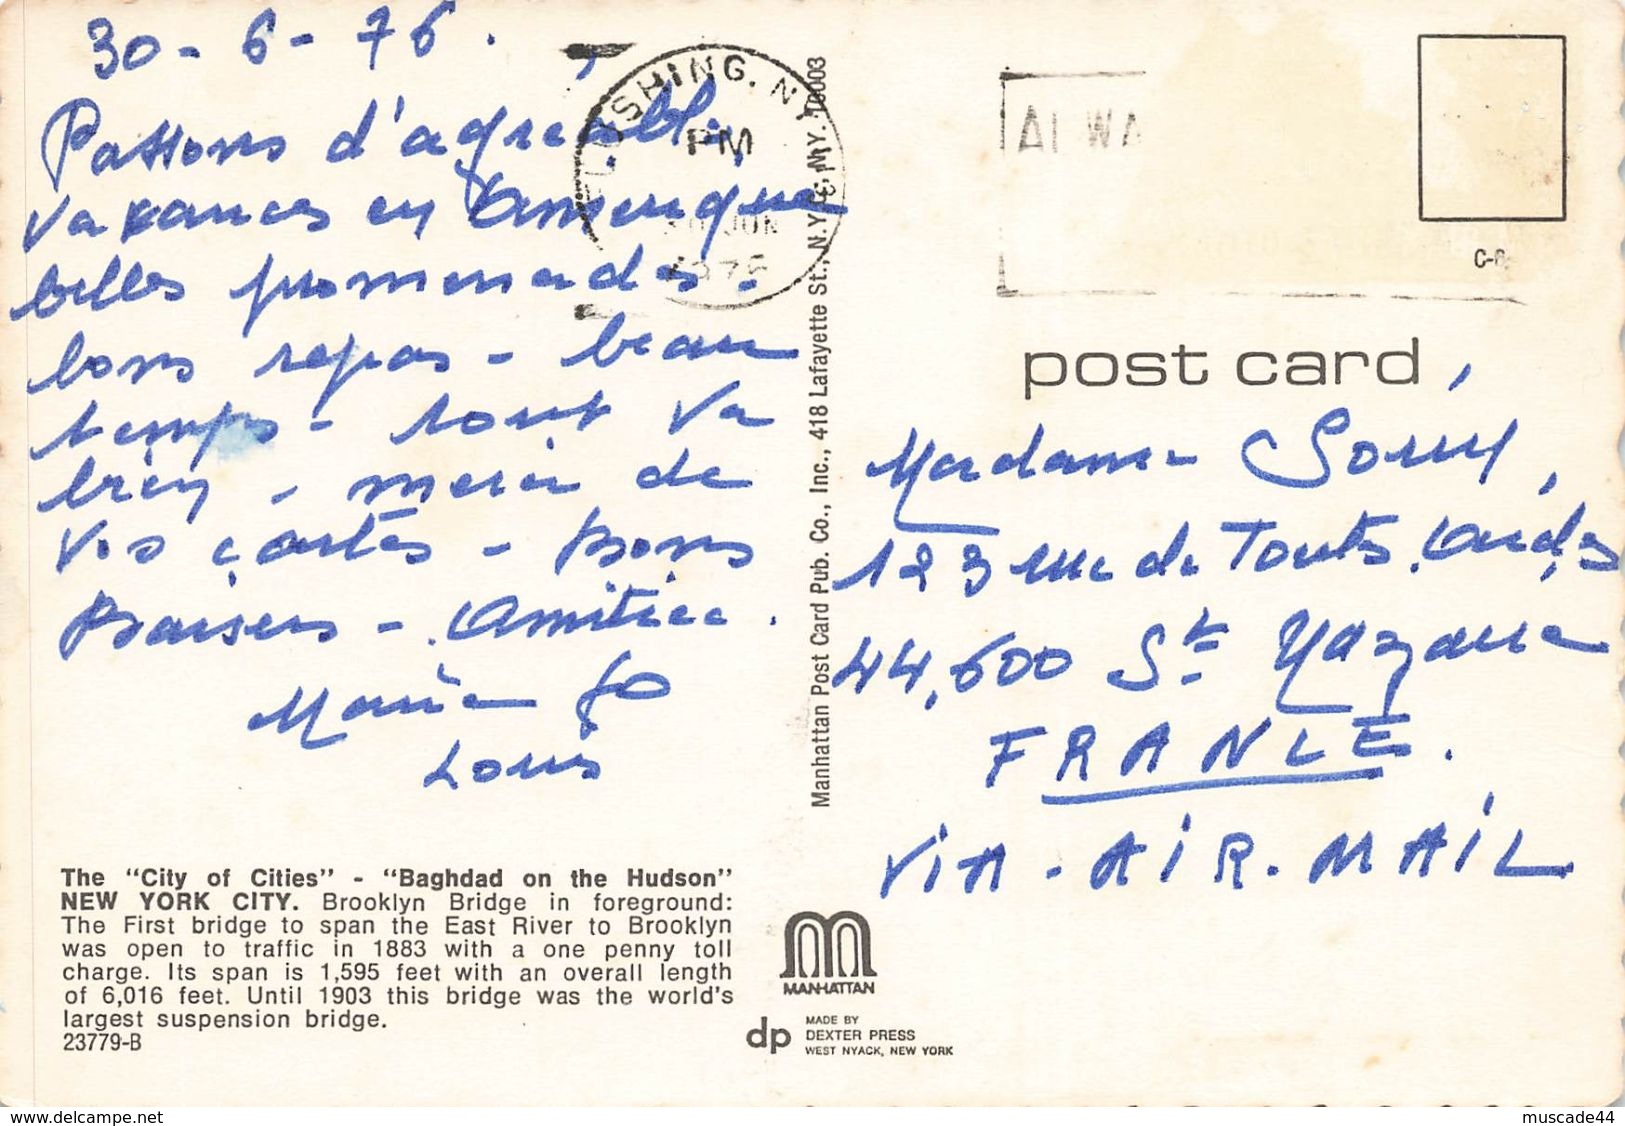 30-6-76.
Passons d'agréables
vacances en Amerique
belles promenades -
bons repas - beau
temps - tout va
bien - merci de
vos cartes - Bons
Baisers - Amitiés.
Marie Jo
Louis
The "City of Cities" - "Baghdad on the Hudson"
NEW YORK CITY. Brooklyn Bridge in foreground:
The First bridge to span the East River to Brooklyn
was open to traffic in 1883 with a one penny toll
charge. Its span is 1,595 feet with an overall length
of 6,016 feet. Until 1903 this bridge was the world's
largest suspension bridge.
23779-B
FLUSHING, NY
PM
30 JUN
1976
Manhattan Post Card Pub. Co., Inc., 418 Lafayette St., N.Y.C., N.Y. 10003
MANHATTAN
dp
MADE BY
DEXTER PRESS
WEST NYACK, NEW YORK
ALWA
C-6
post card
Madame
123 rue de Toutes Aides
44.600 St Nazaire
FRANCE.
VIA-AIR-MAIL
www.delcampe.net
muscade44